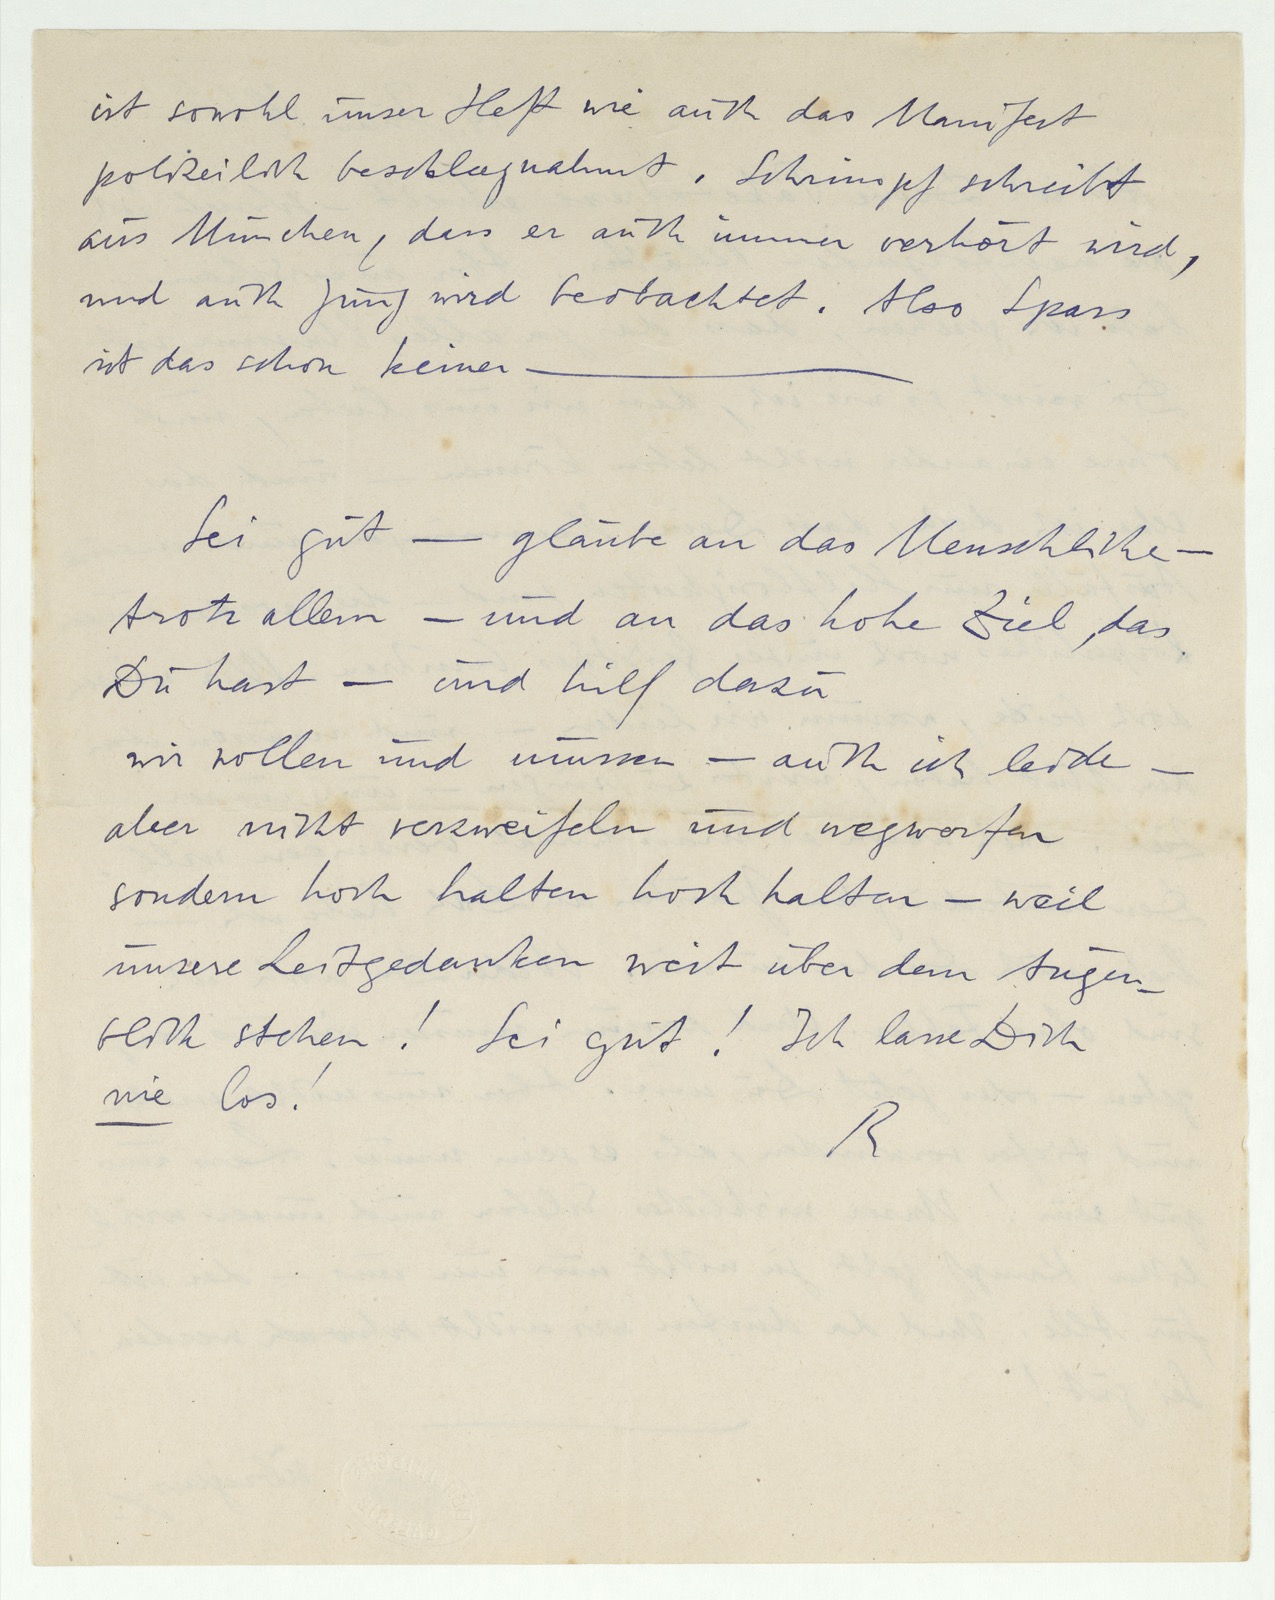 ist sowohl unser Heft wie auch das Manifest
polizeilich beschlagnahmt. Schrimpf schreibt
aus München, dass er auch immer verhört wird,
und auch Jung wird beobachtet. Also Spass
ist das schon keiner —
Sei gut — glaube an das Menschliche —
trotz allem — und an das hohe Ziel, das
Du hast — und hilf dazu
wir wollen und müssen — auch ich leide —
aber nicht verzweifeln und wegwerfen
sondern hoch halten hoch halten — weil
unsere Leitgedanken weit über dem Augen-
blick stehen! Sei gut! Ich lasse Dich
nie los!
R